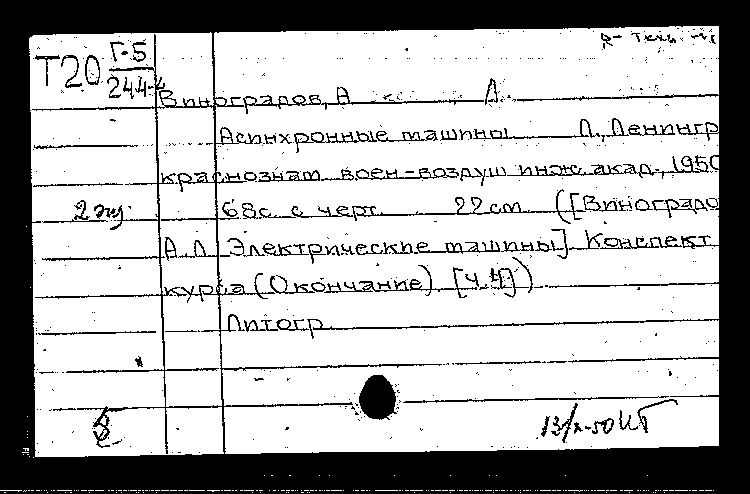 Т20 Г-5
244-4
Виноградов, А Л.
Асинхронные машины Л., Ленингр
краснознам. воен-воздуш инж. акад., 1950
2 экз. 68с. с черт. 22 см ([Виноградо
А. Л. Электрические машины] Конспект
курса (Окончание) [ч. 4])
Литогр.